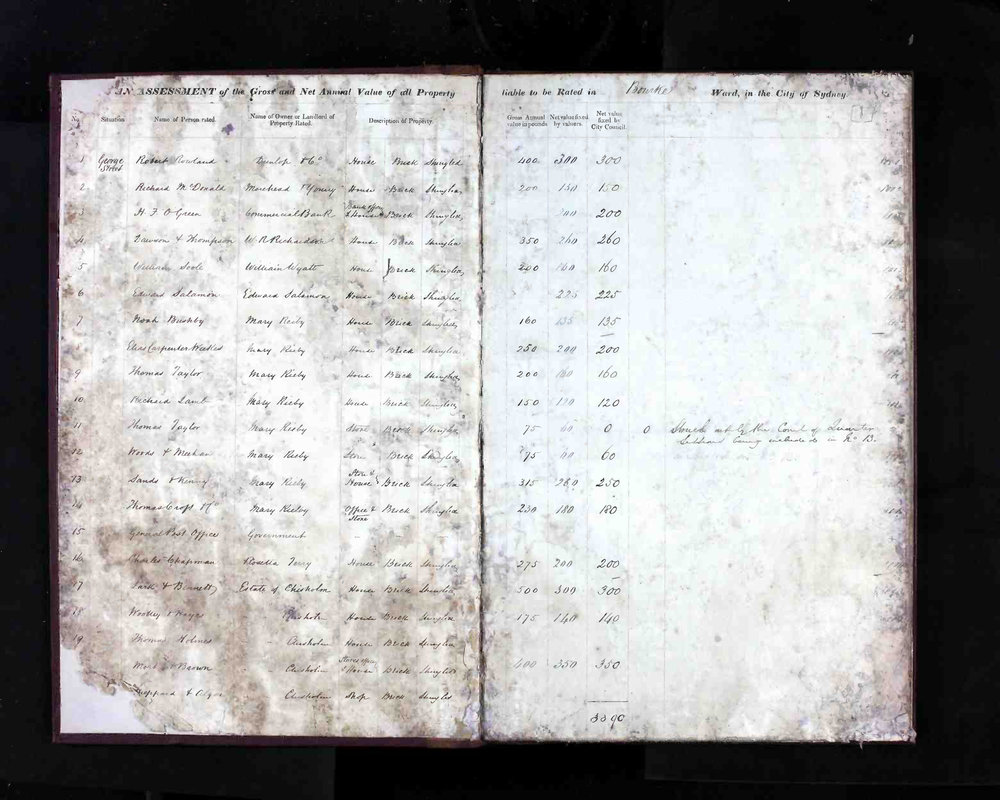 AN ASSESSMENT of the Gross and Net Annual Value of all Property liable to be Rated in Bourke Ward, in the City of Sydney
Situation Name of Person rated. Name of Owner or Landlord of Property Rated. Description of Property. Gross Annual value in pounds. Net value fixed by valuers. Net value fixed by City Council.
1 George Street Robert Rowland Dunlop & Co House Brick Shingled 400 300 300
2 Richard McDonald Morehead & Young House Brick Shingled 200 150 150
3 H. F. O Green Commercial Bank & House Brick Shingled 200 200
4 Dawson & Thompson W. R. Richardson House Brick Shingled 350 260 260
5 William Soole William Wyatt House Brick Shingled 200 160 160
6 Edward Salamon Edward Salamon House Brick Shingled 225 225
7 Noah Bushby Mary Reiby House Brick Shingled 160 135 135
Elias Carpenter Weekes Mary Reiby House Brick Shingled 250 200 200
9 Thomas Taylor Mary Reiby House Brick Shingled 200 160 160
10 Richard Lamb Mary Reiby House Brick Shingled 150 120 120
11 Thomas Taylor Mary Reiby Store Brick Shingled 75 60 0 0 Struck out by the Court of Quarter
being included in No 13.
12 Woods & Meehan Mary Reiby Store Brick Shingled 75 60 60
13 Sands & Kenny Mary Reiby Store & House Brick Shingled 315 260 250
14 Thomas Croft & Co Mary Reiby Office & Store Brick Shingled 230 180 180
15 General Post Office Government
16 Charles Chapman Rosetta Terry House Brick Shingled 275 200 200
17 Lark & Bennett Estate of Chisholm House Brick Shingled 500 300 300
18 Woolley & Chisholm House Brick Shingled 175 140 140
19 Thomas Holmes Chisholm House Brick Shingled
& Brown Chisholm & House Brick Shingled 400 350 350
& Chisholm Shop Brick Shingled
3390